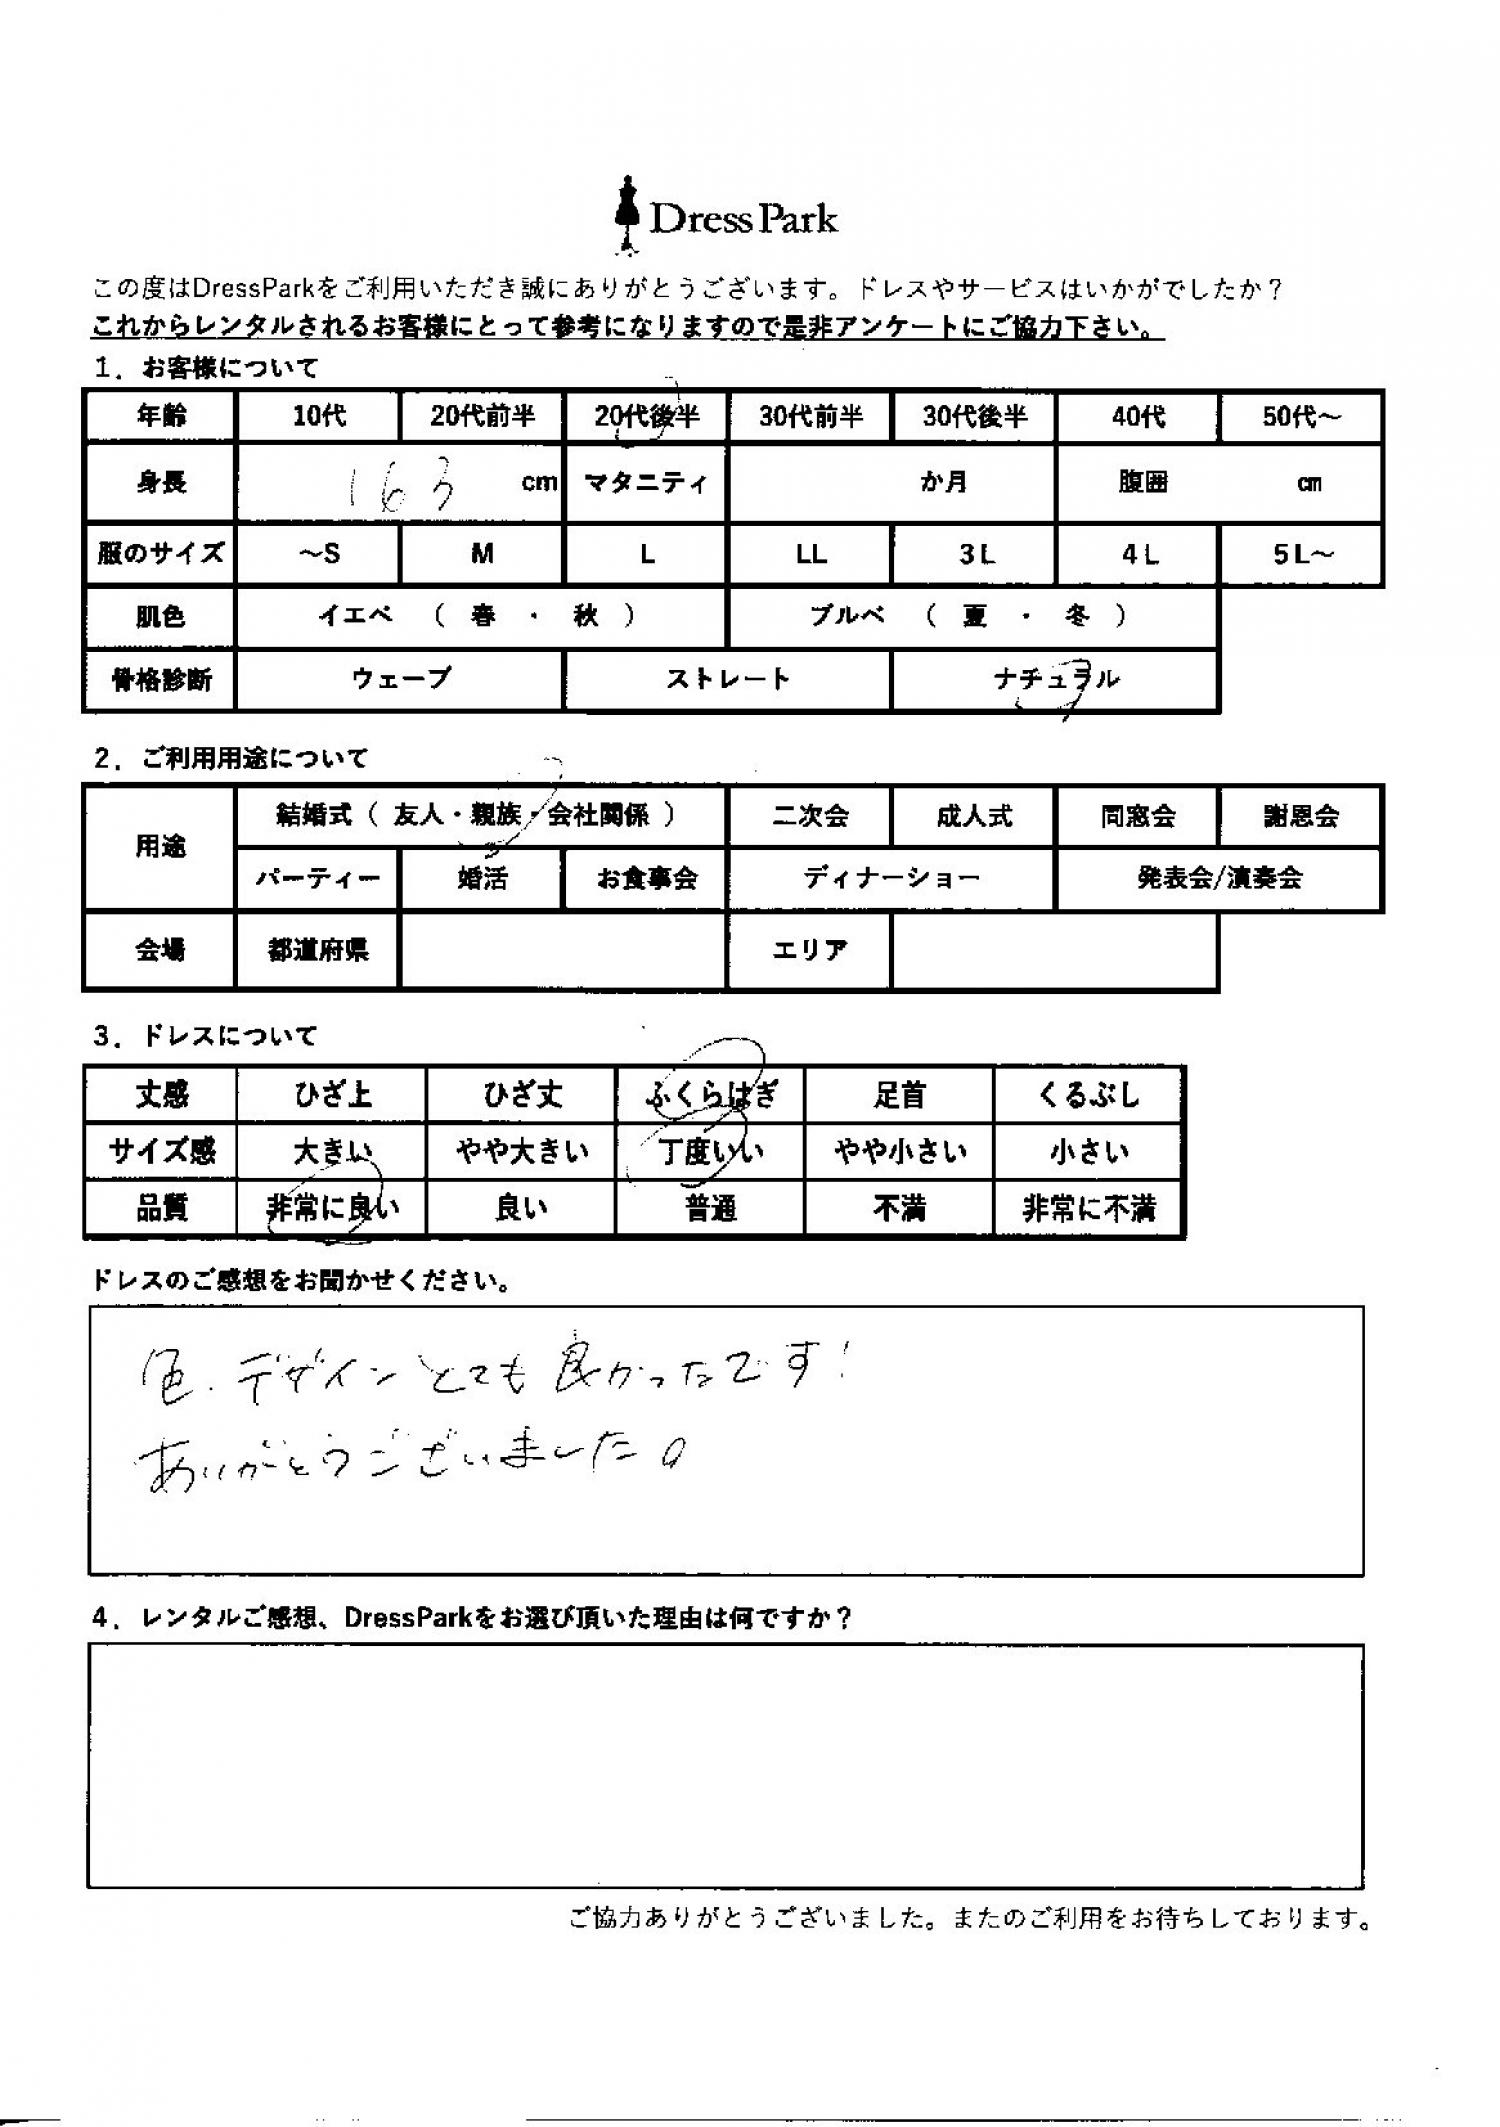 Dress Park
この度はDressParkをご利用いただき誠にありがとうございます。ドレスやサービスはいかがでしたか？
これからレンタルされるお客様にとって参考になりますので是非アンケートにご協力下さい。
１．お客様について
年齢 10代 20代前半 20代後半 30代前半 30代後半 40代 50代～
身長 163 cm マタニティ か月 腹囲 ㎝
服のサイズ ～S M L LL 3L 4L 5L～
肌色 イエベ （ 春 ・ 秋 ） ブルベ （ 夏 ・ 冬 ）
骨格診断 ウェーブ ストレート ナチュラル
２．ご利用用途について
用途 結婚式（ 友人・親族・会社関係 ） 二次会 成人式 同窓会 謝恩会
パーティー 婚活 お食事会 ディナーショー 発表会/演奏会
会場 都道府県 エリア
３．ドレスについて
丈感 ひざ上 ひざ丈 ふくらはぎ 足首 くるぶし
サイズ感 大きい やや大きい 丁度いい やや小さい 小さい
品質 非常に良い 良い 普通 不満 非常に不満
ドレスのご感想をお聞かせください。
色．デザインとても良かったです！
ありがとうございました。
４．レンタルご感想、DressParkをお選び頂いた理由は何ですか？
ご協力ありがとうございました。またのご利用をお待ちしております。